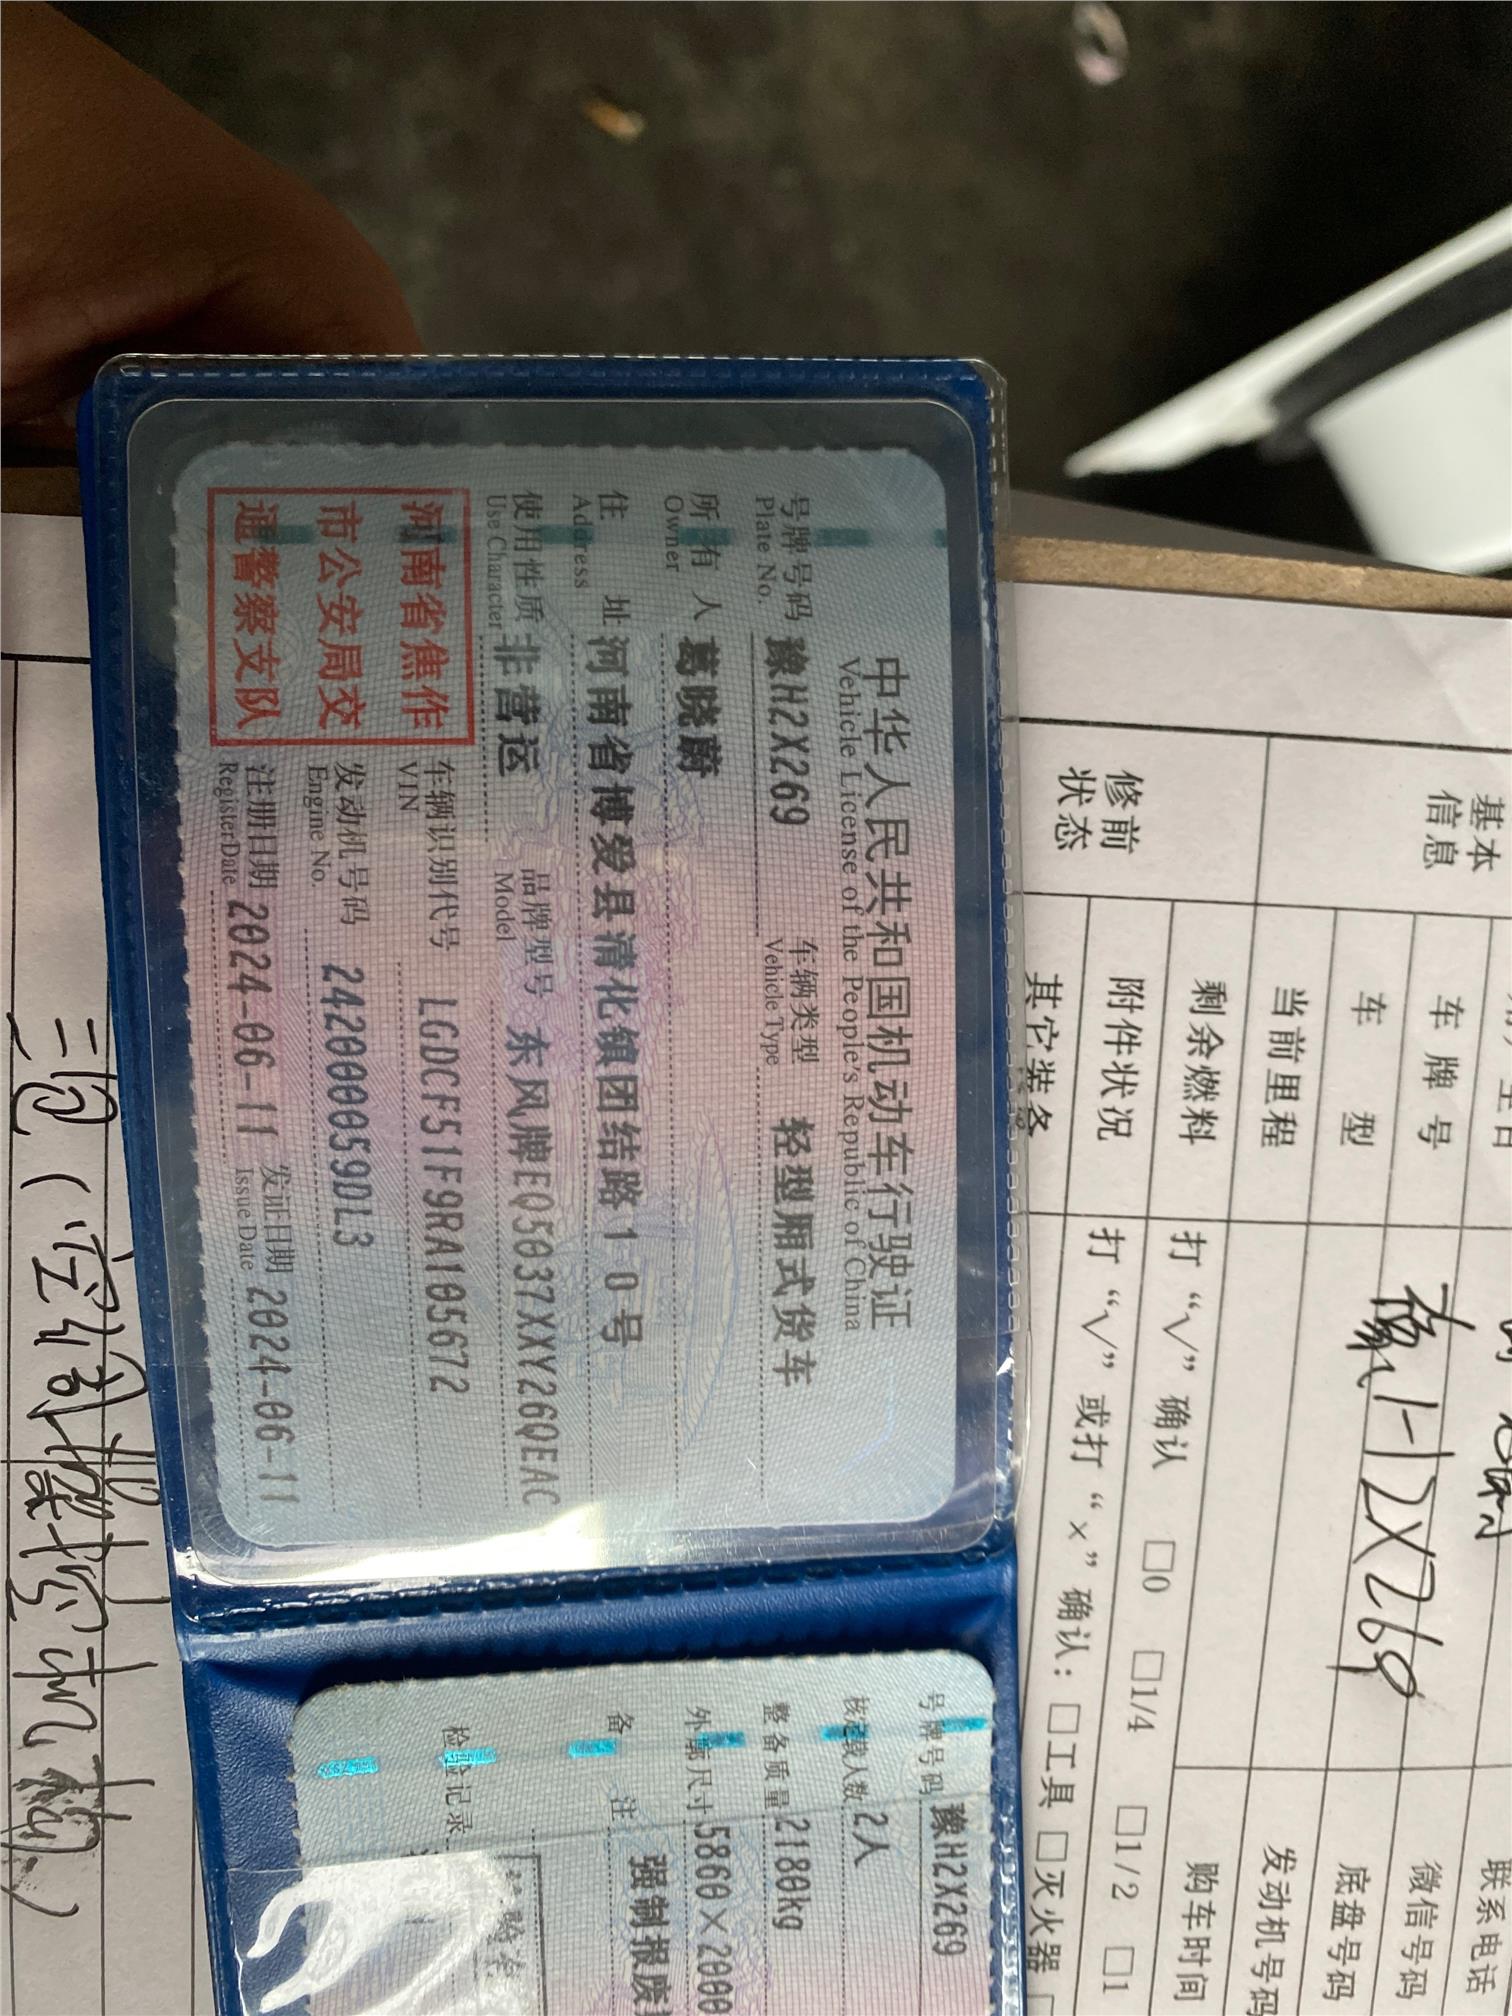 中华人民共和国机动车行驶证
Vehicle License of the People's Republic of China
号牌号码 豫H2X269 车辆类型 轻型厢式货车
Plate No. Vehicle Type
所有人 葛晓蔚
Owner
住址 河南省博爱县清化镇团结路10号
Address
使用性质 非营运 品牌型号 东风牌EQ5037XXY26QEAC
Use Character Model
河南省焦作
市公安局交
通警察支队
车辆识别代号 LGDCF51F9RA105672
VIN
发动机号码 24200059DL3
Engine No.
注册日期 2024-06-11 发证日期 2024-06-11
Register Date Issue Date
号牌号码 豫H2X269
核定载人数 2人
整备质量 2180kg
外廓尺寸 5860×2000
备注 强制报废
检验记录
基本
信息
联系电话
车牌号 豫H2X269 微信号码
车型 底盘号码
当前里程 发动机号码
修前
状态
剩余燃料 打“√”确认 □0 □1/4 □1/2 □1
购车时间
附件状况 打“√”或打“×”确认: □工具 □灭火器
其它装备